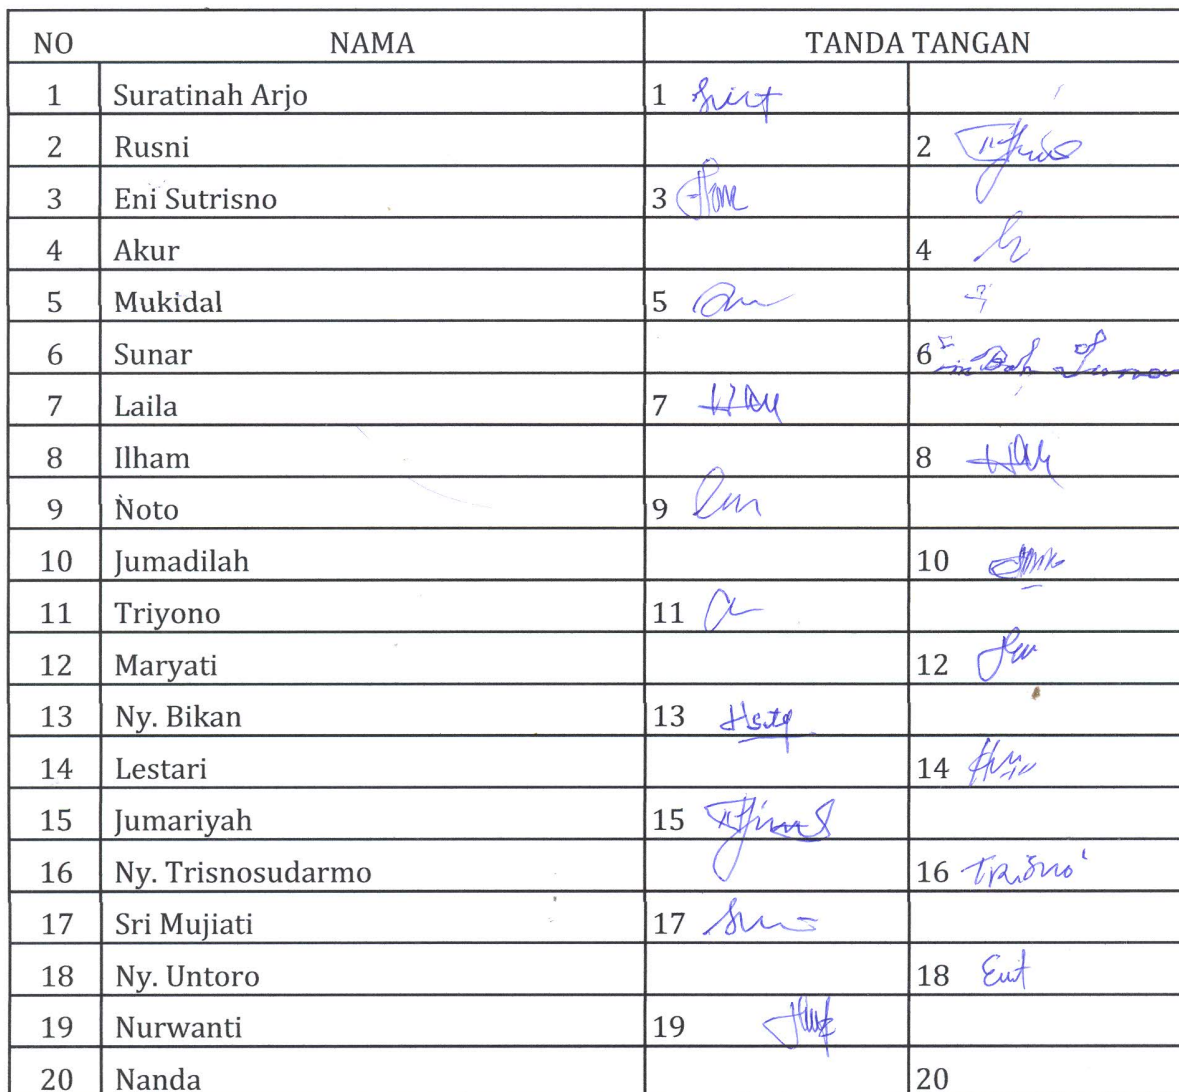 NO NAMA TANDA TANGAN
1 Suratinah Arjo 1
2 Rusni 2
3 Eni Sutrisno 3
4 Akur 4
5 Mukidal 5
6 Sunar 6
7 Laila 7
8 Ilham 8
9 Noto 9
10 Jumadilah 10
11 Triyono 11
12 Maryati 12
13 Ny. Bikan 13
14 Lestari 14
15 Jumariyah 15
16 Ny. Trisnosudarmo 16 Trisno
17 Sri Mujiati 17
18 Ny. Untoro 18
19 Nurwanti 19
20 Nanda 20